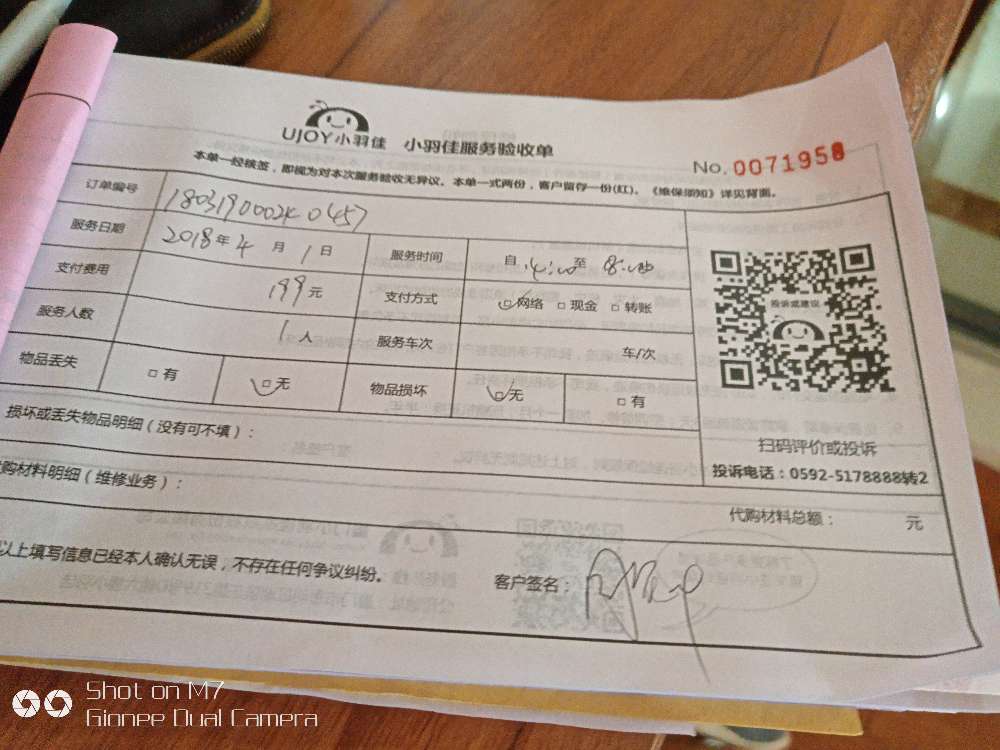 UJOY小羽佳 小羽佳服务验收单
No. 0071958
本单一经核签，即视为对本次服务验收无异议。本单一式两份，客户留存一份(红)。《维保须知》详见背面。
订单编号 180319000240457
服务日期 2018年4月1日 服务时间 自 14:00 至
支付费用 199元 支付方式 网络 现金 转账
服务人数 1人 服务车次 车/次
物品丢失 有 无 物品损坏 无 有
投诉或建议
扫码评价或投诉
投诉电话：0592-5178888转2
损坏或丢失物品明细(没有可不填)：
购材料明细(维修业务)：
代购材料总额： 元
以上填写信息已经本人确认无误，不存在任何争议纠纷。 客户签名：
Shot on M7
Gionee Dual Camera